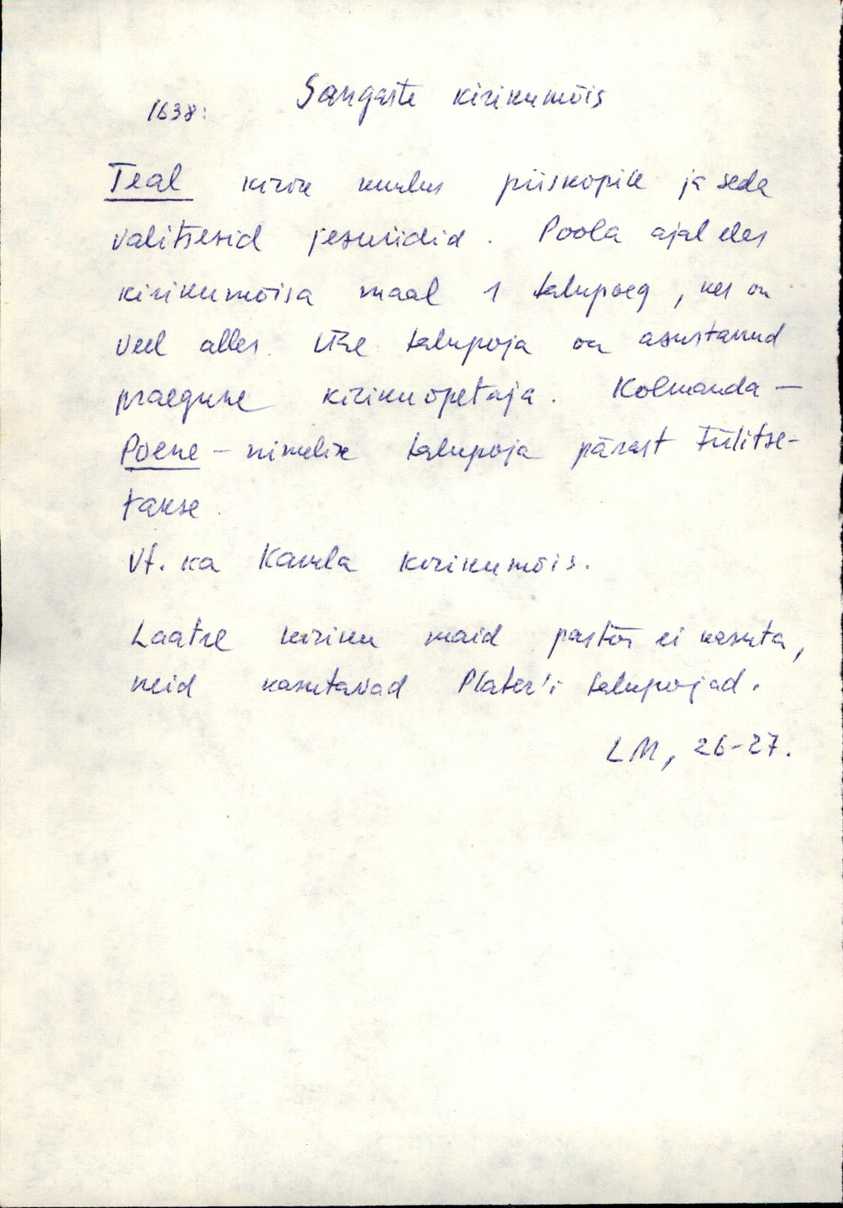 Sangaste kirikumõis
1638:
Teal kirik kuulus piiskopile ja seda
valitsesid jesuiidid. Poola ajal elas
kirikumõisa maal 1 talupoeg, kes on
veel alles. Ühe talupoja on asustanud
praegune kirikuõpetaja. Kolmanda -
Poene - nimelise talupoja pärast tülitse-
takse.
Vt. ka Karula kirikumõis.
Laatre kiriku maid pastor ei kasuta,
neid kasutavad Plater'i talupojad.
LM, 26-27.